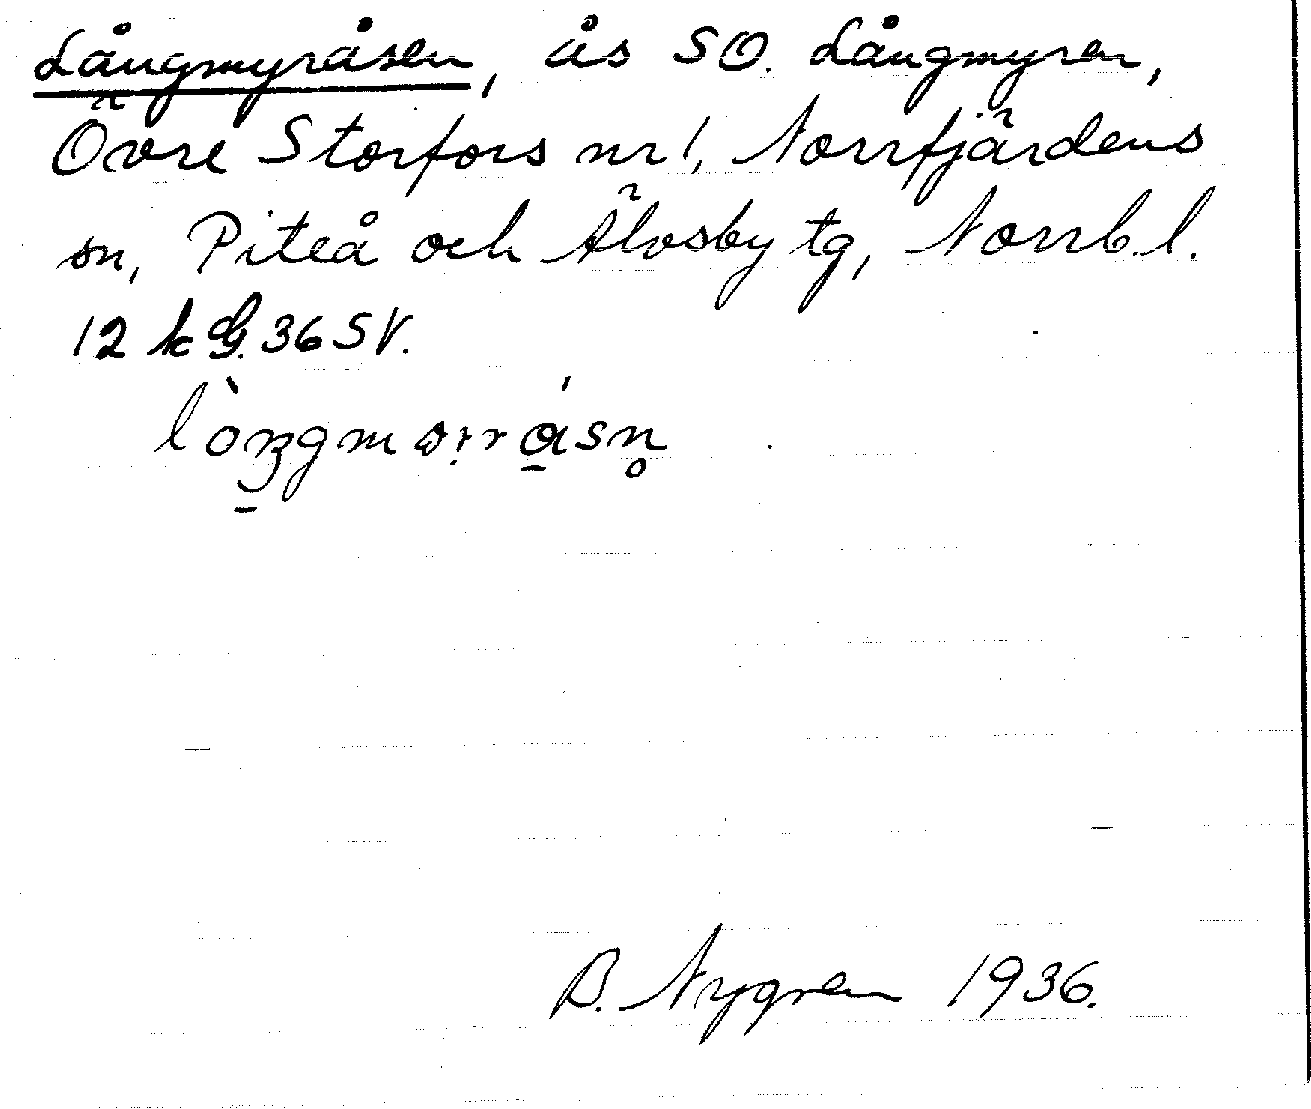 Långmyråsen, ås SO. Långmyren,
Övre Storfors nr 1, Norrfjärdens
sn, Piteå och Älvsby tg, Norrb. l.
12 k G. 36 SV.
B. Nygren 1936.